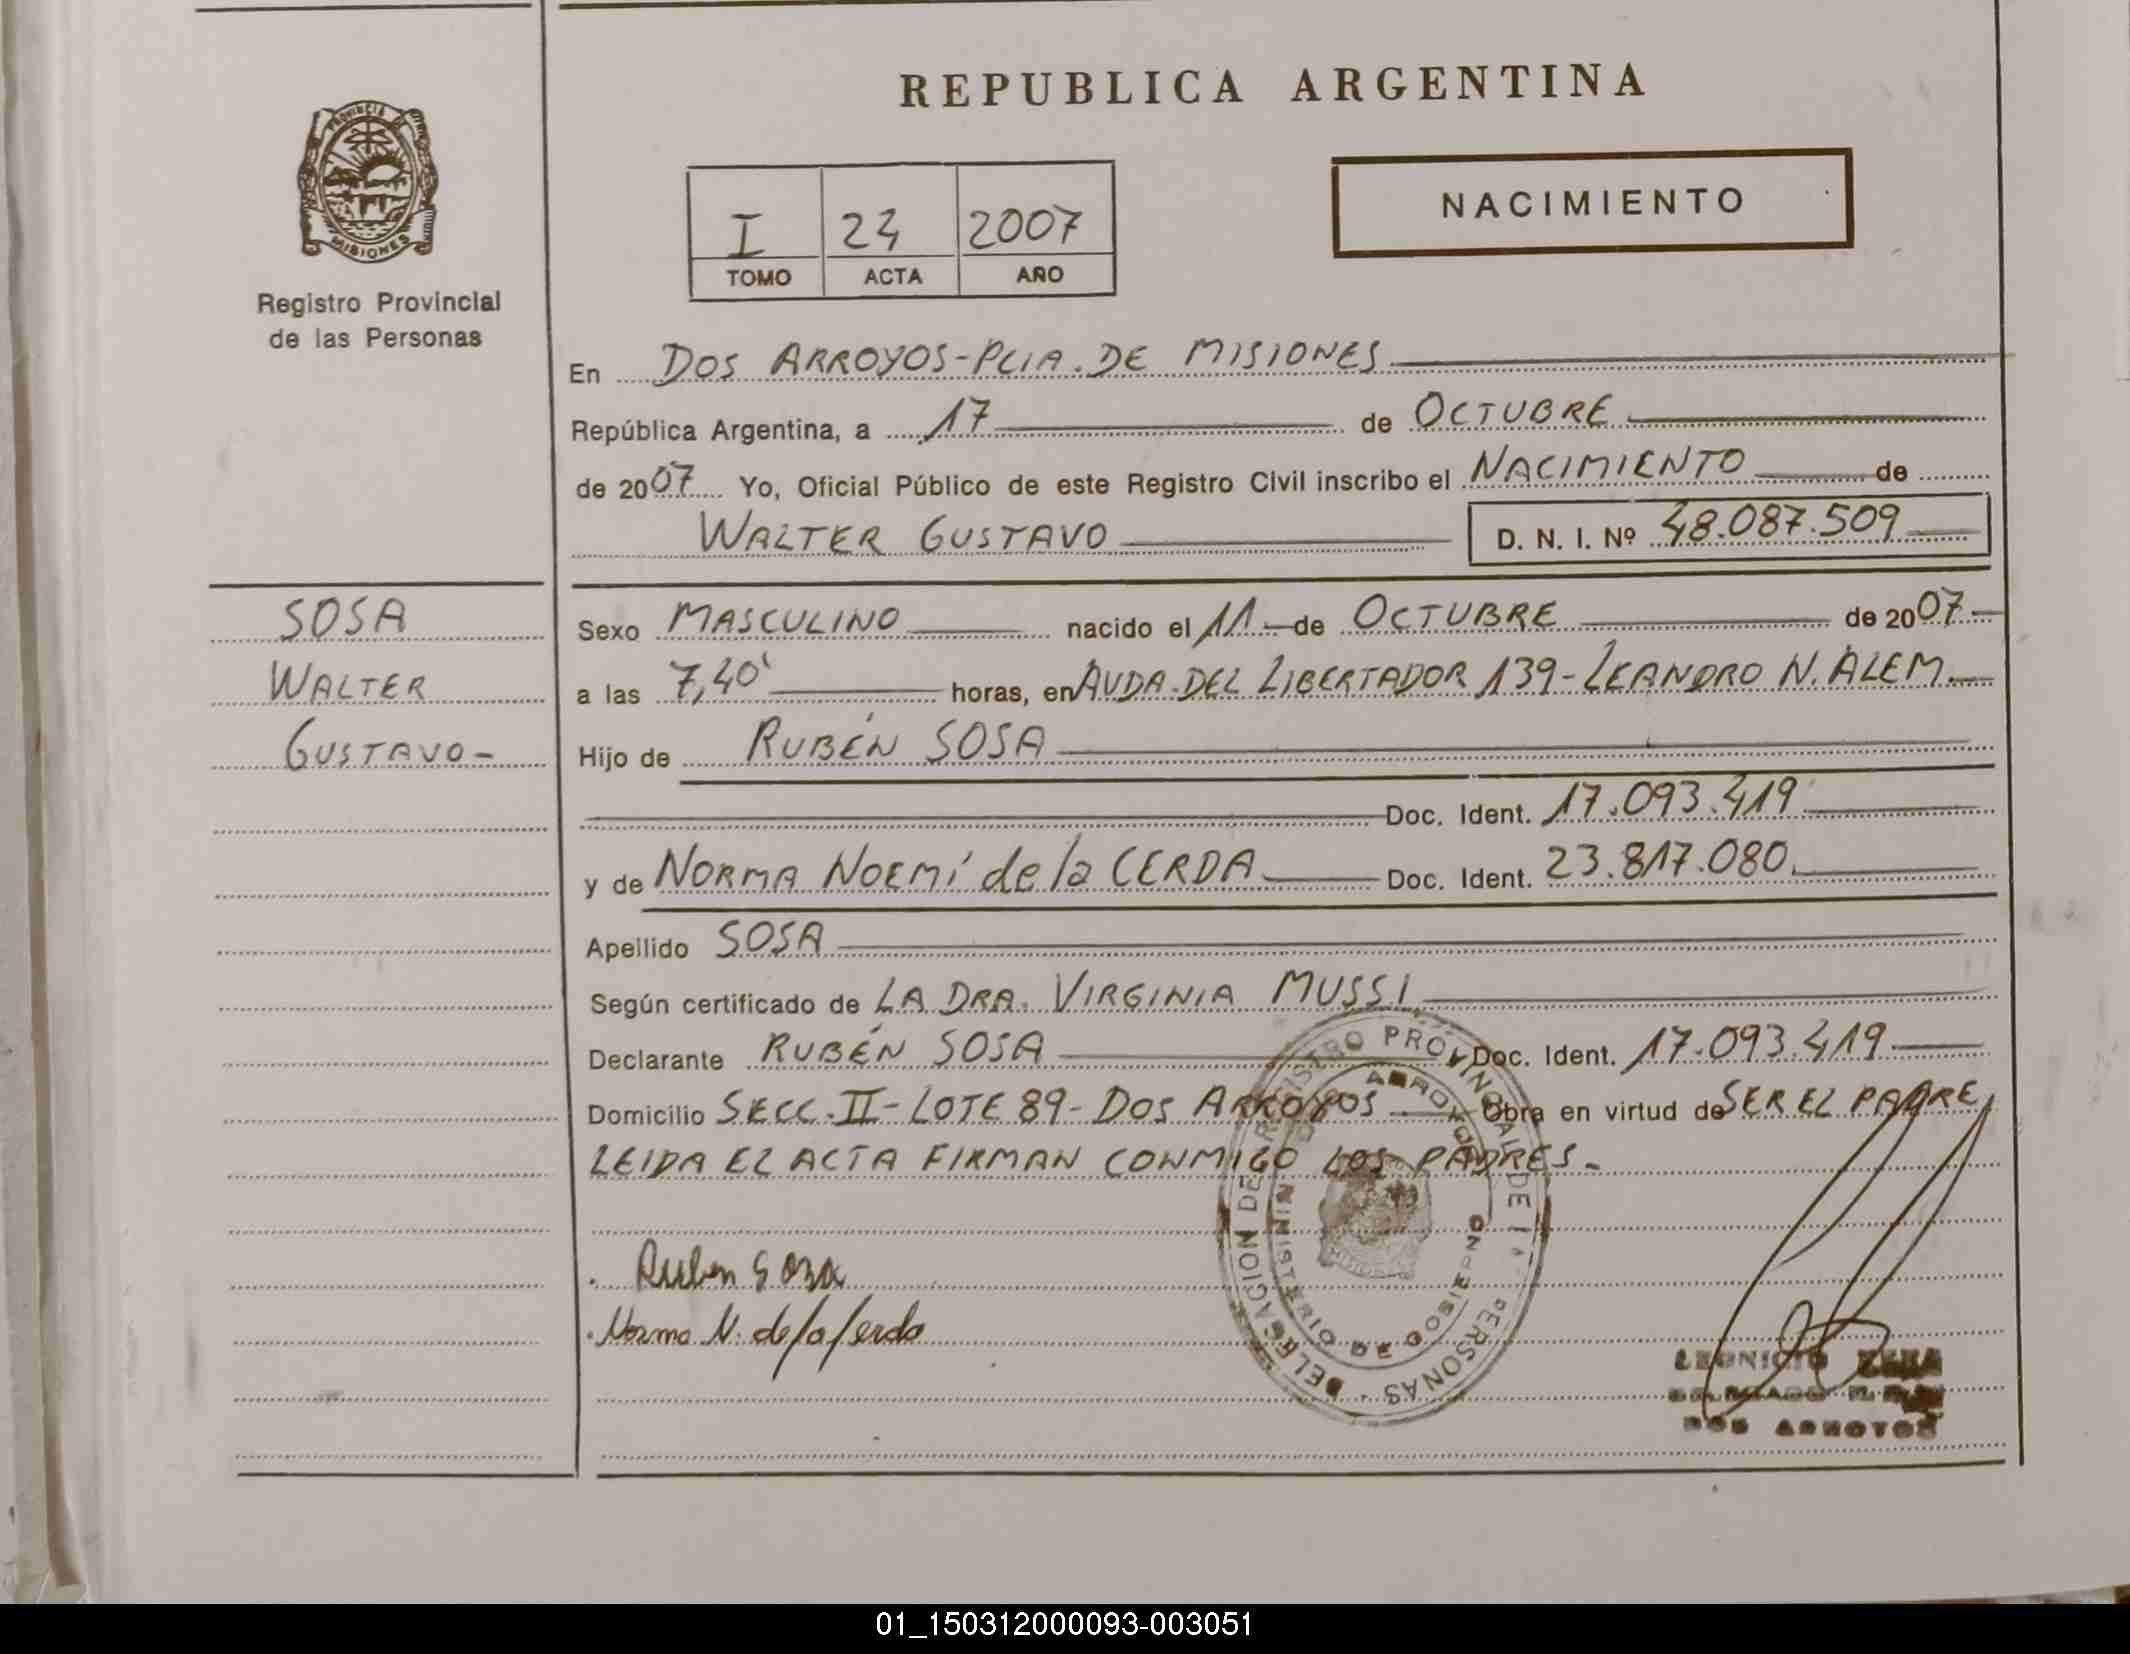 REPUBLICA ARGENTINA
PROVINCIA
MISIONES
Registro Provincial
de las Personas
NACIMIENTO
I 24 2007
TOMO ACTA AÑO
En DOS ARROYOS-PCIA. DE MISIONES
República Argentina, a 17 de OCTUBRE
de 2007 Yo, Oficial Público de este Registro Civil inscribo el NACIMIENTO de
WALTER GUSTAVO D. N. I. Nº 48.087.509
SOSA
WALTER
GUSTAVO-
Sexo MASCULINO nacido el 11 de OCTUBRE de 2007-
a las 7,40' horas, en AVDA. DEL LIBERTADOR 139-LEANDRO N. ALEM
Hijo de RUBÉN SOSA
Doc. Ident. 17.093.419
y de NORMA NOEMÍ de la CERDA Doc. Ident. 23.817.080
Apellido SOSA
Según certificado de LA DRA. VIRGINIA MUSSI
Declarante RUBÉN SOSA Doc. Ident. 17.093.419
Domicilio SECC. II-LOTE 89-DOS ARROYOS Obra en virtud de SER EL PADRE
LEIDA EL ACTA FIRMAN CONMIGO LOS PADRES-
Ruben Sosa
Norma N. de la Cerda
DELEGACION DE REGISTRO PROVINCIAL DE PERSONAS
MINISTERIO DE GOBIERNO
DOS ARROYOS
01_150312000093-003051